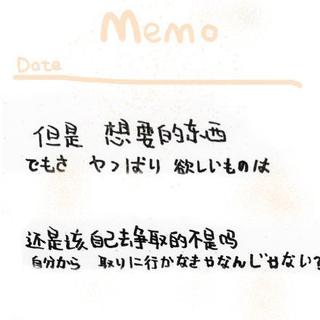 Memo
Date
但是 想要的东西
でもさ やっぱり 欲しいものは
还是该自己去争取的不是吗
自分から 取りに行かなきゃなんじゃない?